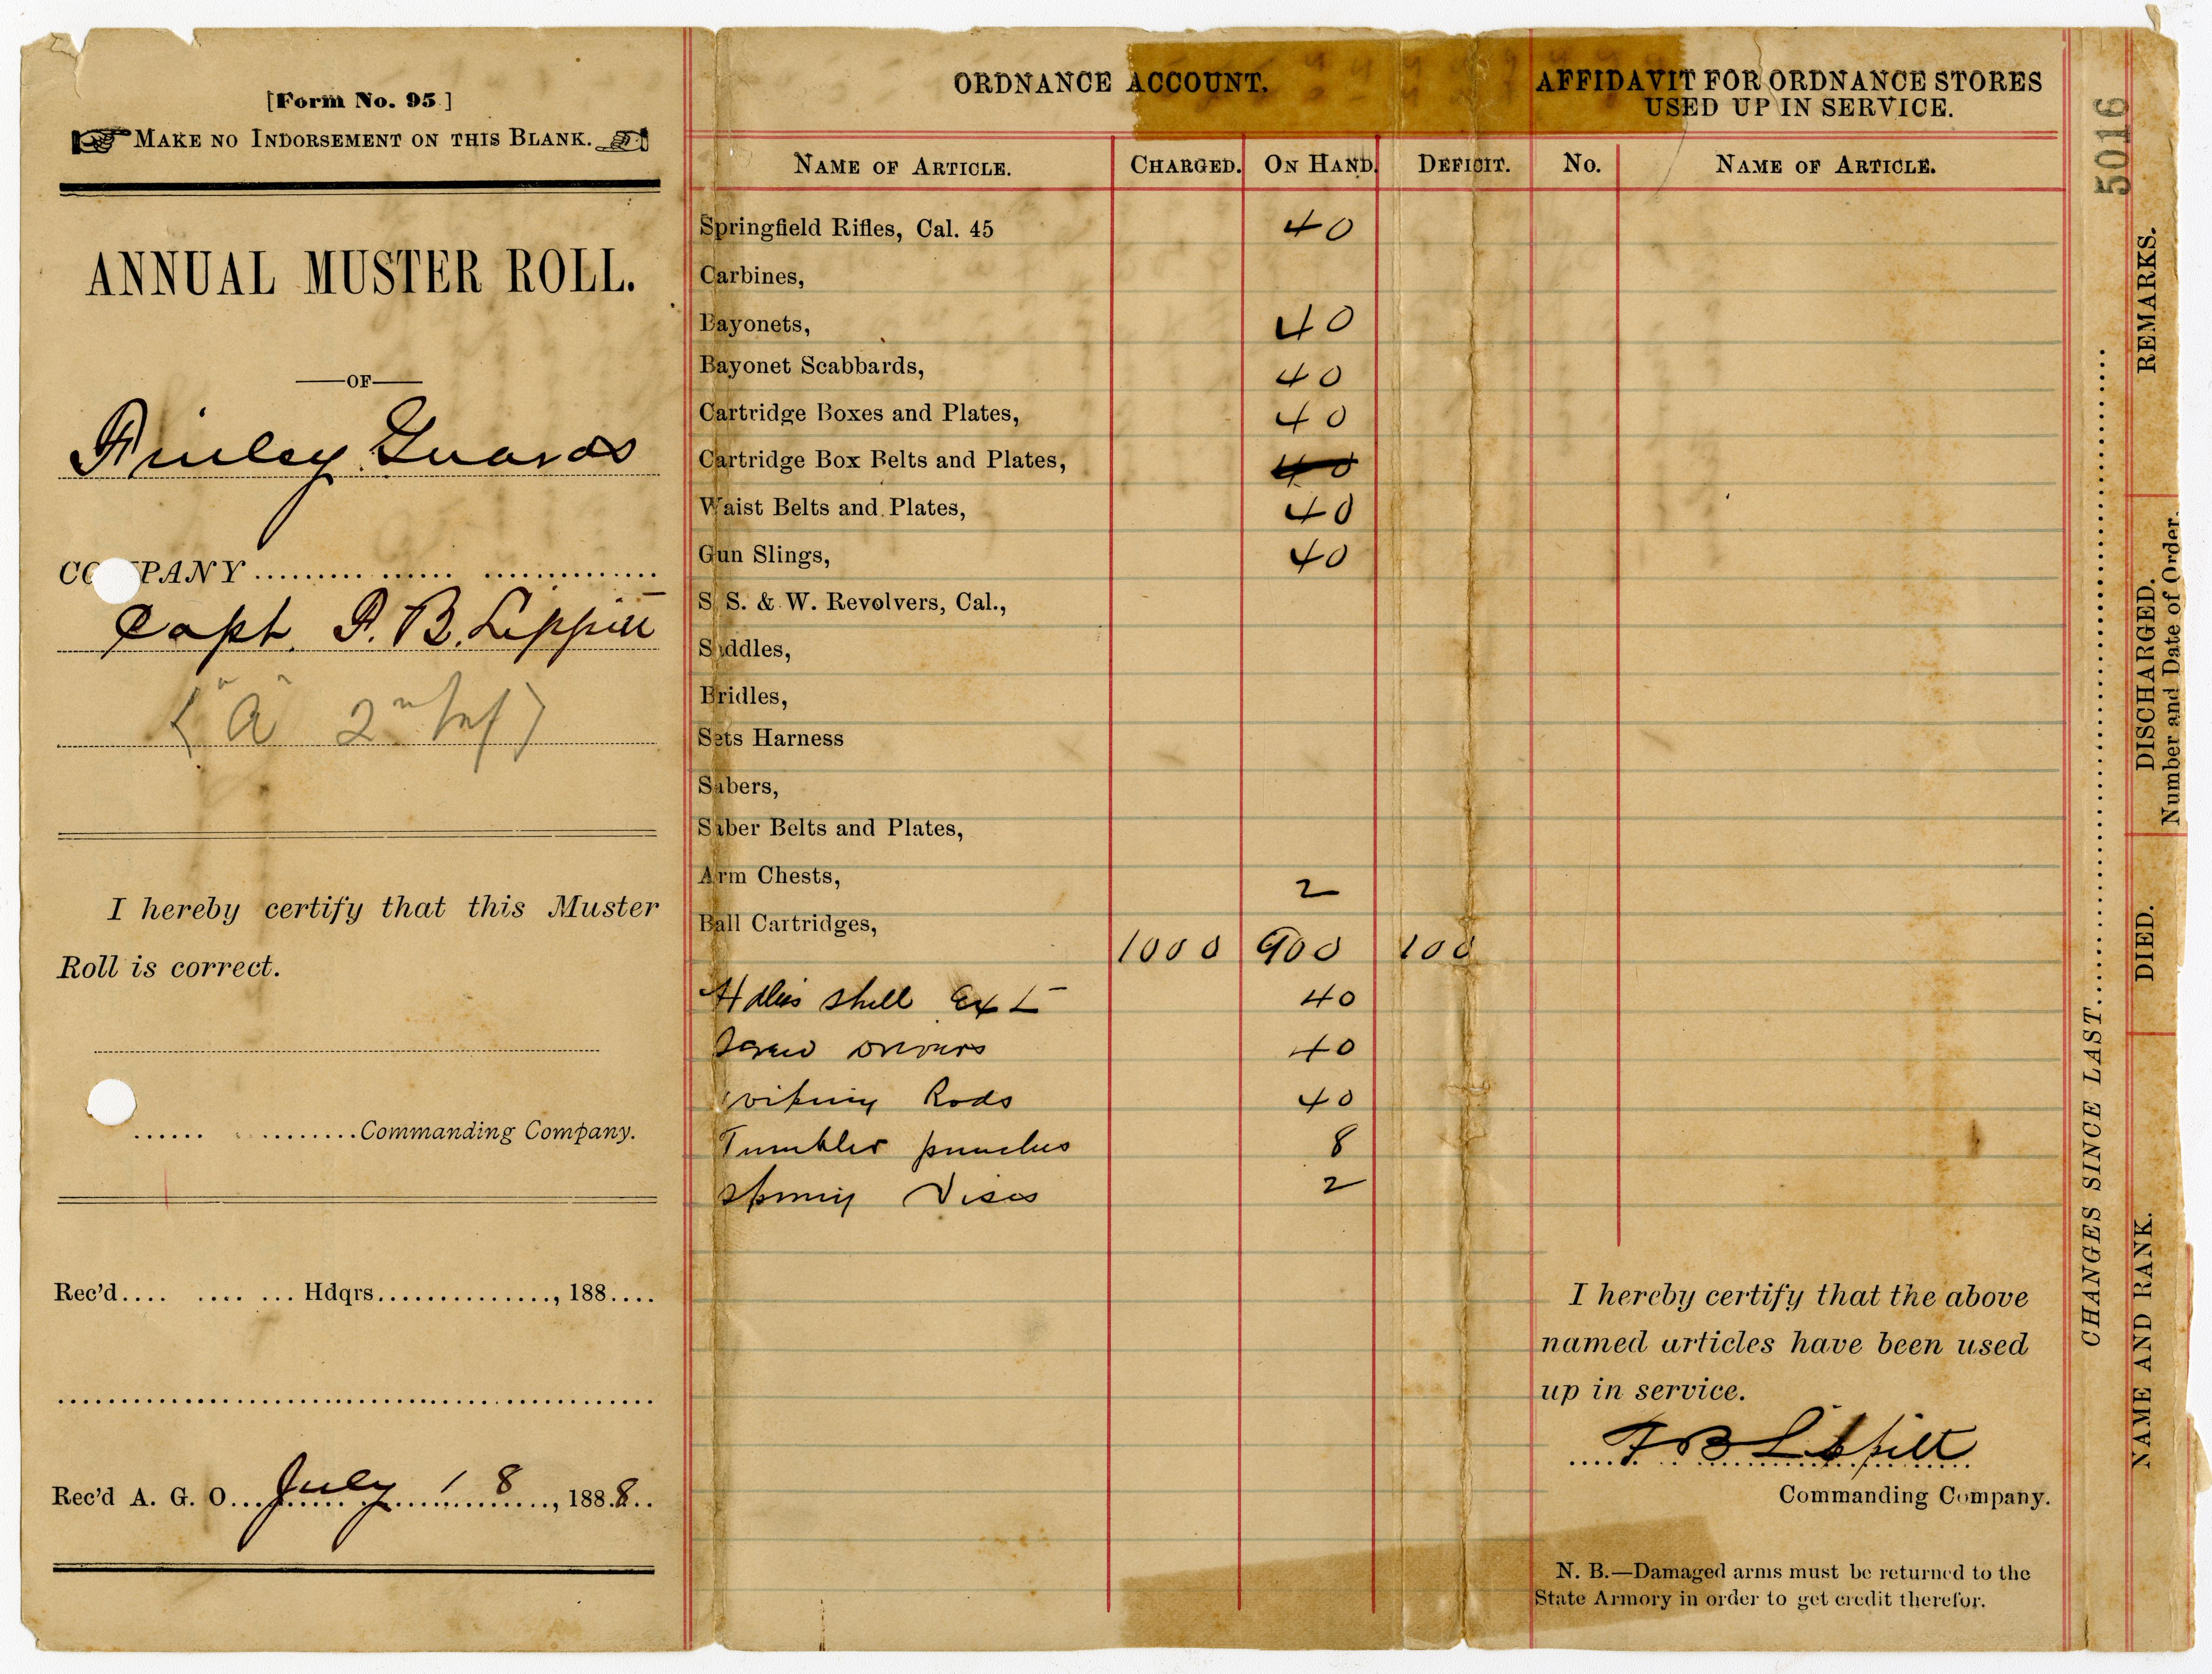 [Form No. 95]
MAKE NO INDORSEMENT ON THIS BLANK.
ANNUAL MUSTER ROLL.
OF
Finley Guards
COMPANY
Capt. F. B. Lippitt
("A" 2" Inf)
I hereby certify that this Muster
Roll is correct.
Commanding Company.
Rec'd.... Hdqrs..............., 188....
Rec'd A. G. O... July 18, 1888..
ORDNANCE ACCOUNT.
NAME OF ARTICLE. CHARGED. ON HAND. DEFICIT.
Springfield Rifles, Cal. 45 40
Carbines,
Bayonets, 40
Bayonet Scabbards, 40
Cartridge Boxes and Plates, 40
Cartridge Box Belts and Plates, 40
Waist Belts and Plates, 40
Gun Slings, 40
S. S. & W. Revolvers, Cal.,
Saddles,
Bridles,
Sets Harness
Sabers,
Saber Belts and Plates,
Arm Chests, 2
Ball Cartridges,
1000 900 100
Hdlis shell Ext 40
Screw Drivers 40
Wiping Rods 40
Tumbler punches 8
Spring Vises 2
AFFIDAVIT FOR ORDNANCE STORES
USED UP IN SERVICE.
No. NAME OF ARTICLE.
I hereby certify that the above
named articles have been used
up in service.
F B Lippitt
Commanding Company.
N. B.—Damaged arms must be returned to the
State Armory in order to get credit therefor.
5016
CHANGES SINCE LAST
NAME AND RANK. DIED. DISCHARGED. REMARKS.
Number and Date of Order.